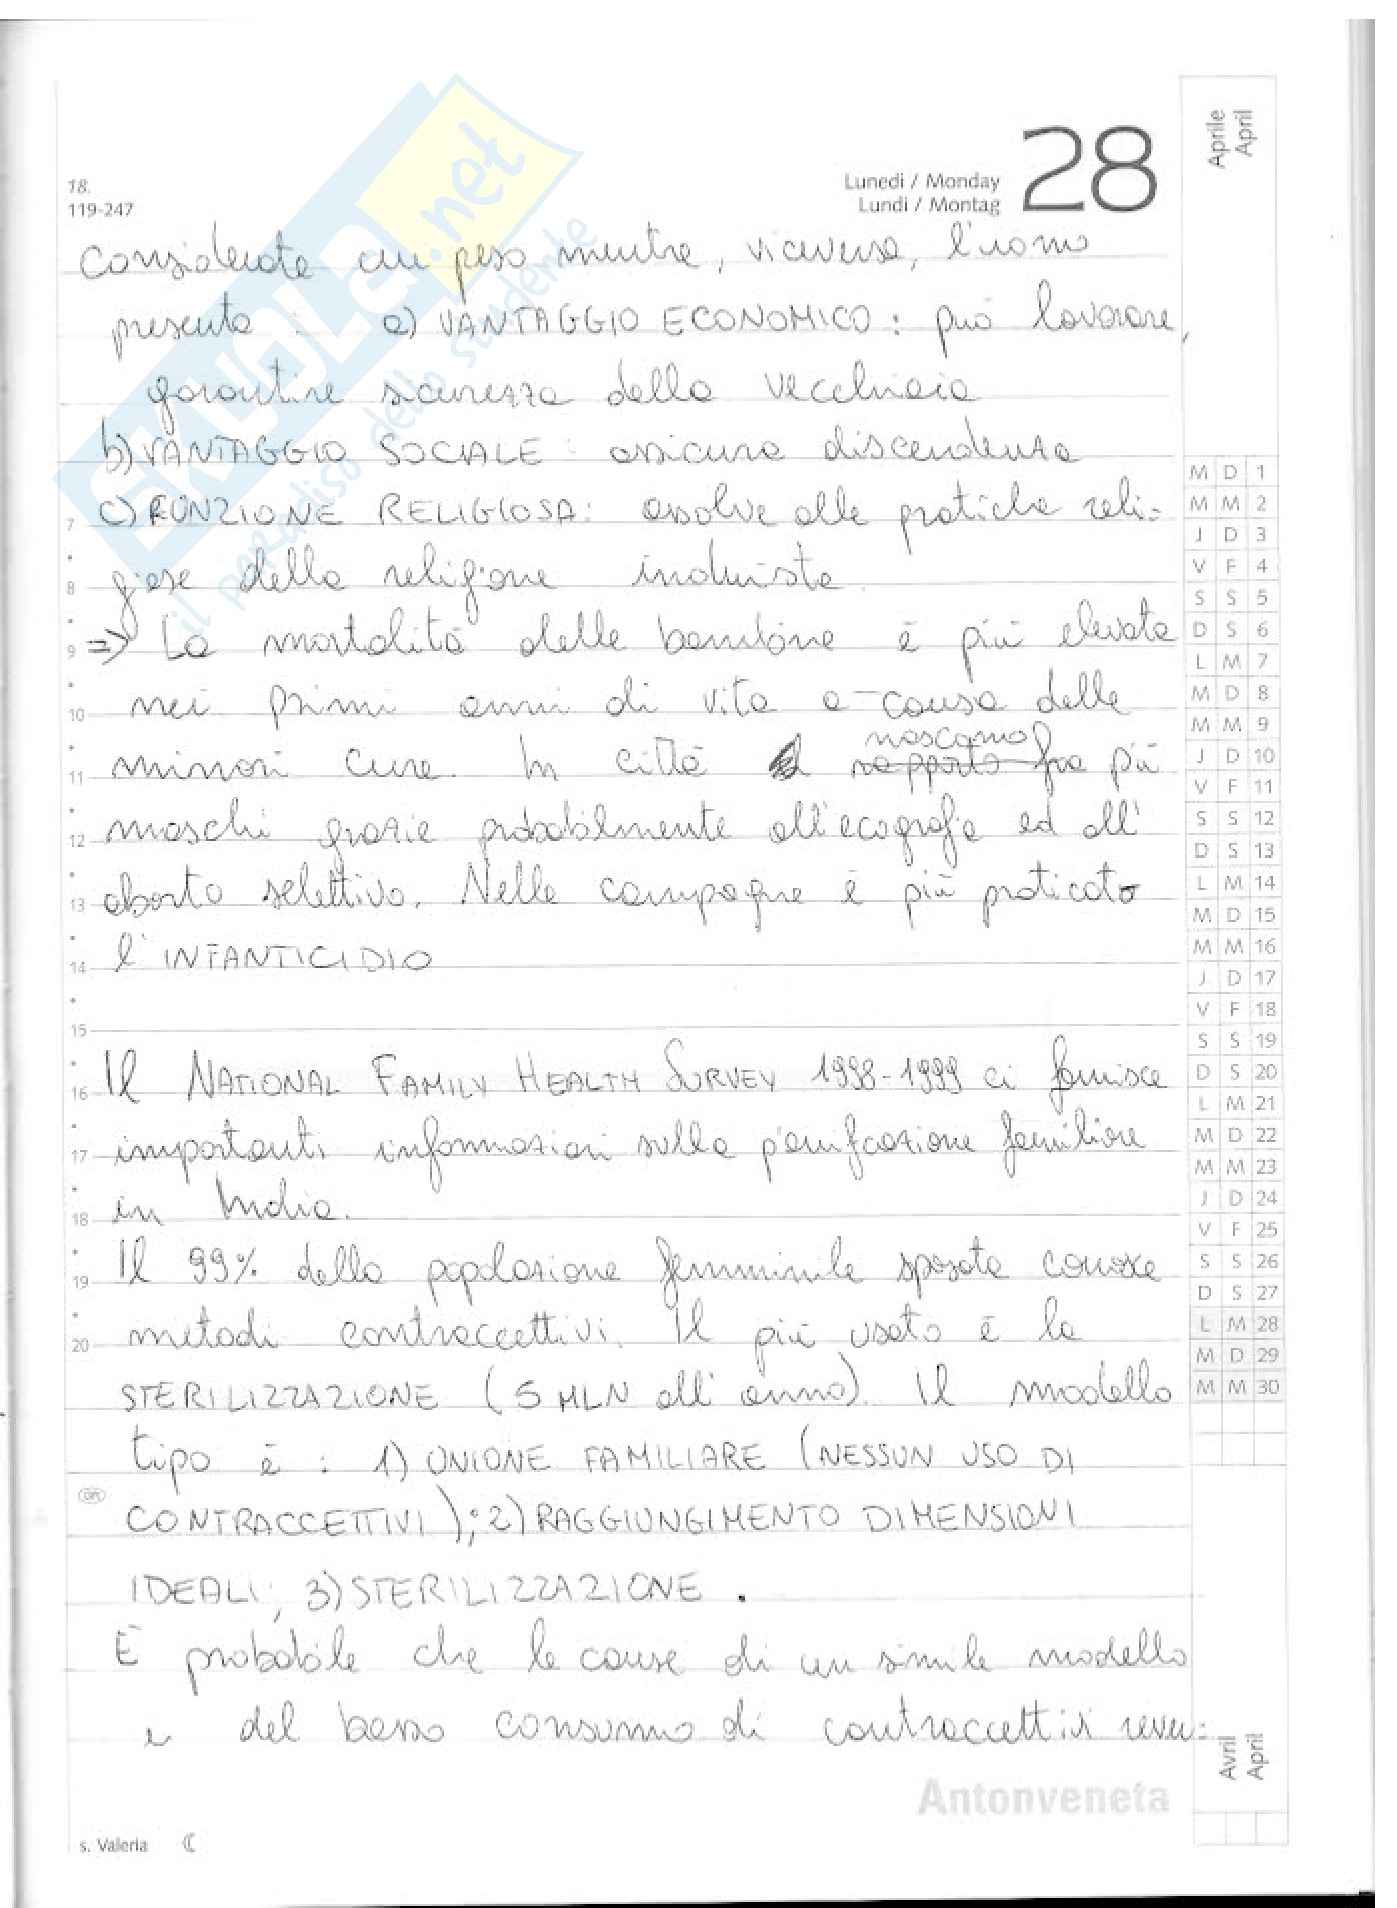 Aprile
April
28
Lunedi / Monday
Lundi / Montag
18.
119-247
SKUOLA.net
il paradiso dello studente
considerata un peso mentre, viceversa, l'uomo
presenta : a) VANTAGGIO ECONOMICO: può lavorare,
garantire sicurezza della vecchiaia
b) VANTAGGIO SOCIALE : assicura discendenza
c) FUNZIONE RELIGIOSA: assolve alle pratiche reli=
7
giose della religione induista
8
=> La mortalità delle bambine è più elevata
9
nei primi anni di vita a causa delle
10
nascono
minori cure. In città rapporto fra più
11
maschi grazie probabilmente all'ecografia ed all'
12
aborto selettivo. Nelle campagne è più praticato
13
l'INFANTICIDIO
14
15
Il NATIONAL FAMILY HEALTH SURVEY 1998-1999 ci fornisce
16
importanti informazioni sulla pianificazione familiare
17
in India.
18
Il 99% della popolazione femminile sposata conosce
19
metodi contraccettivi. Il più usato è la
20
STERILIZZAZIONE (5 MLN all'anno). Il modello
tipo è : 1) UNIONE FAMILIARE (NESSUN USO DI
CONTRACCETTIVI); 2) RAGGIUNGIMENTO DIMENSIONI
IDEALI; 3) STERILIZZAZIONE.
È probabile che le cause di un simile modello
e del basso consumo di contraccettivi
M D 1
M M 2
J D 3
V F 4
S S 5
D S 6
L M 7
M D 8
M M 9
J D 10
V F 11
S S 12
D S 13
L M 14
M D 15
M M 16
J D 17
V F 18
S S 19
D S 20
L M 21
M D 22
M M 23
J D 24
V F 25
S S 26
D S 27
L M 28
M D 29
M M 30
Avril
April
Antonveneta
s. Valeria